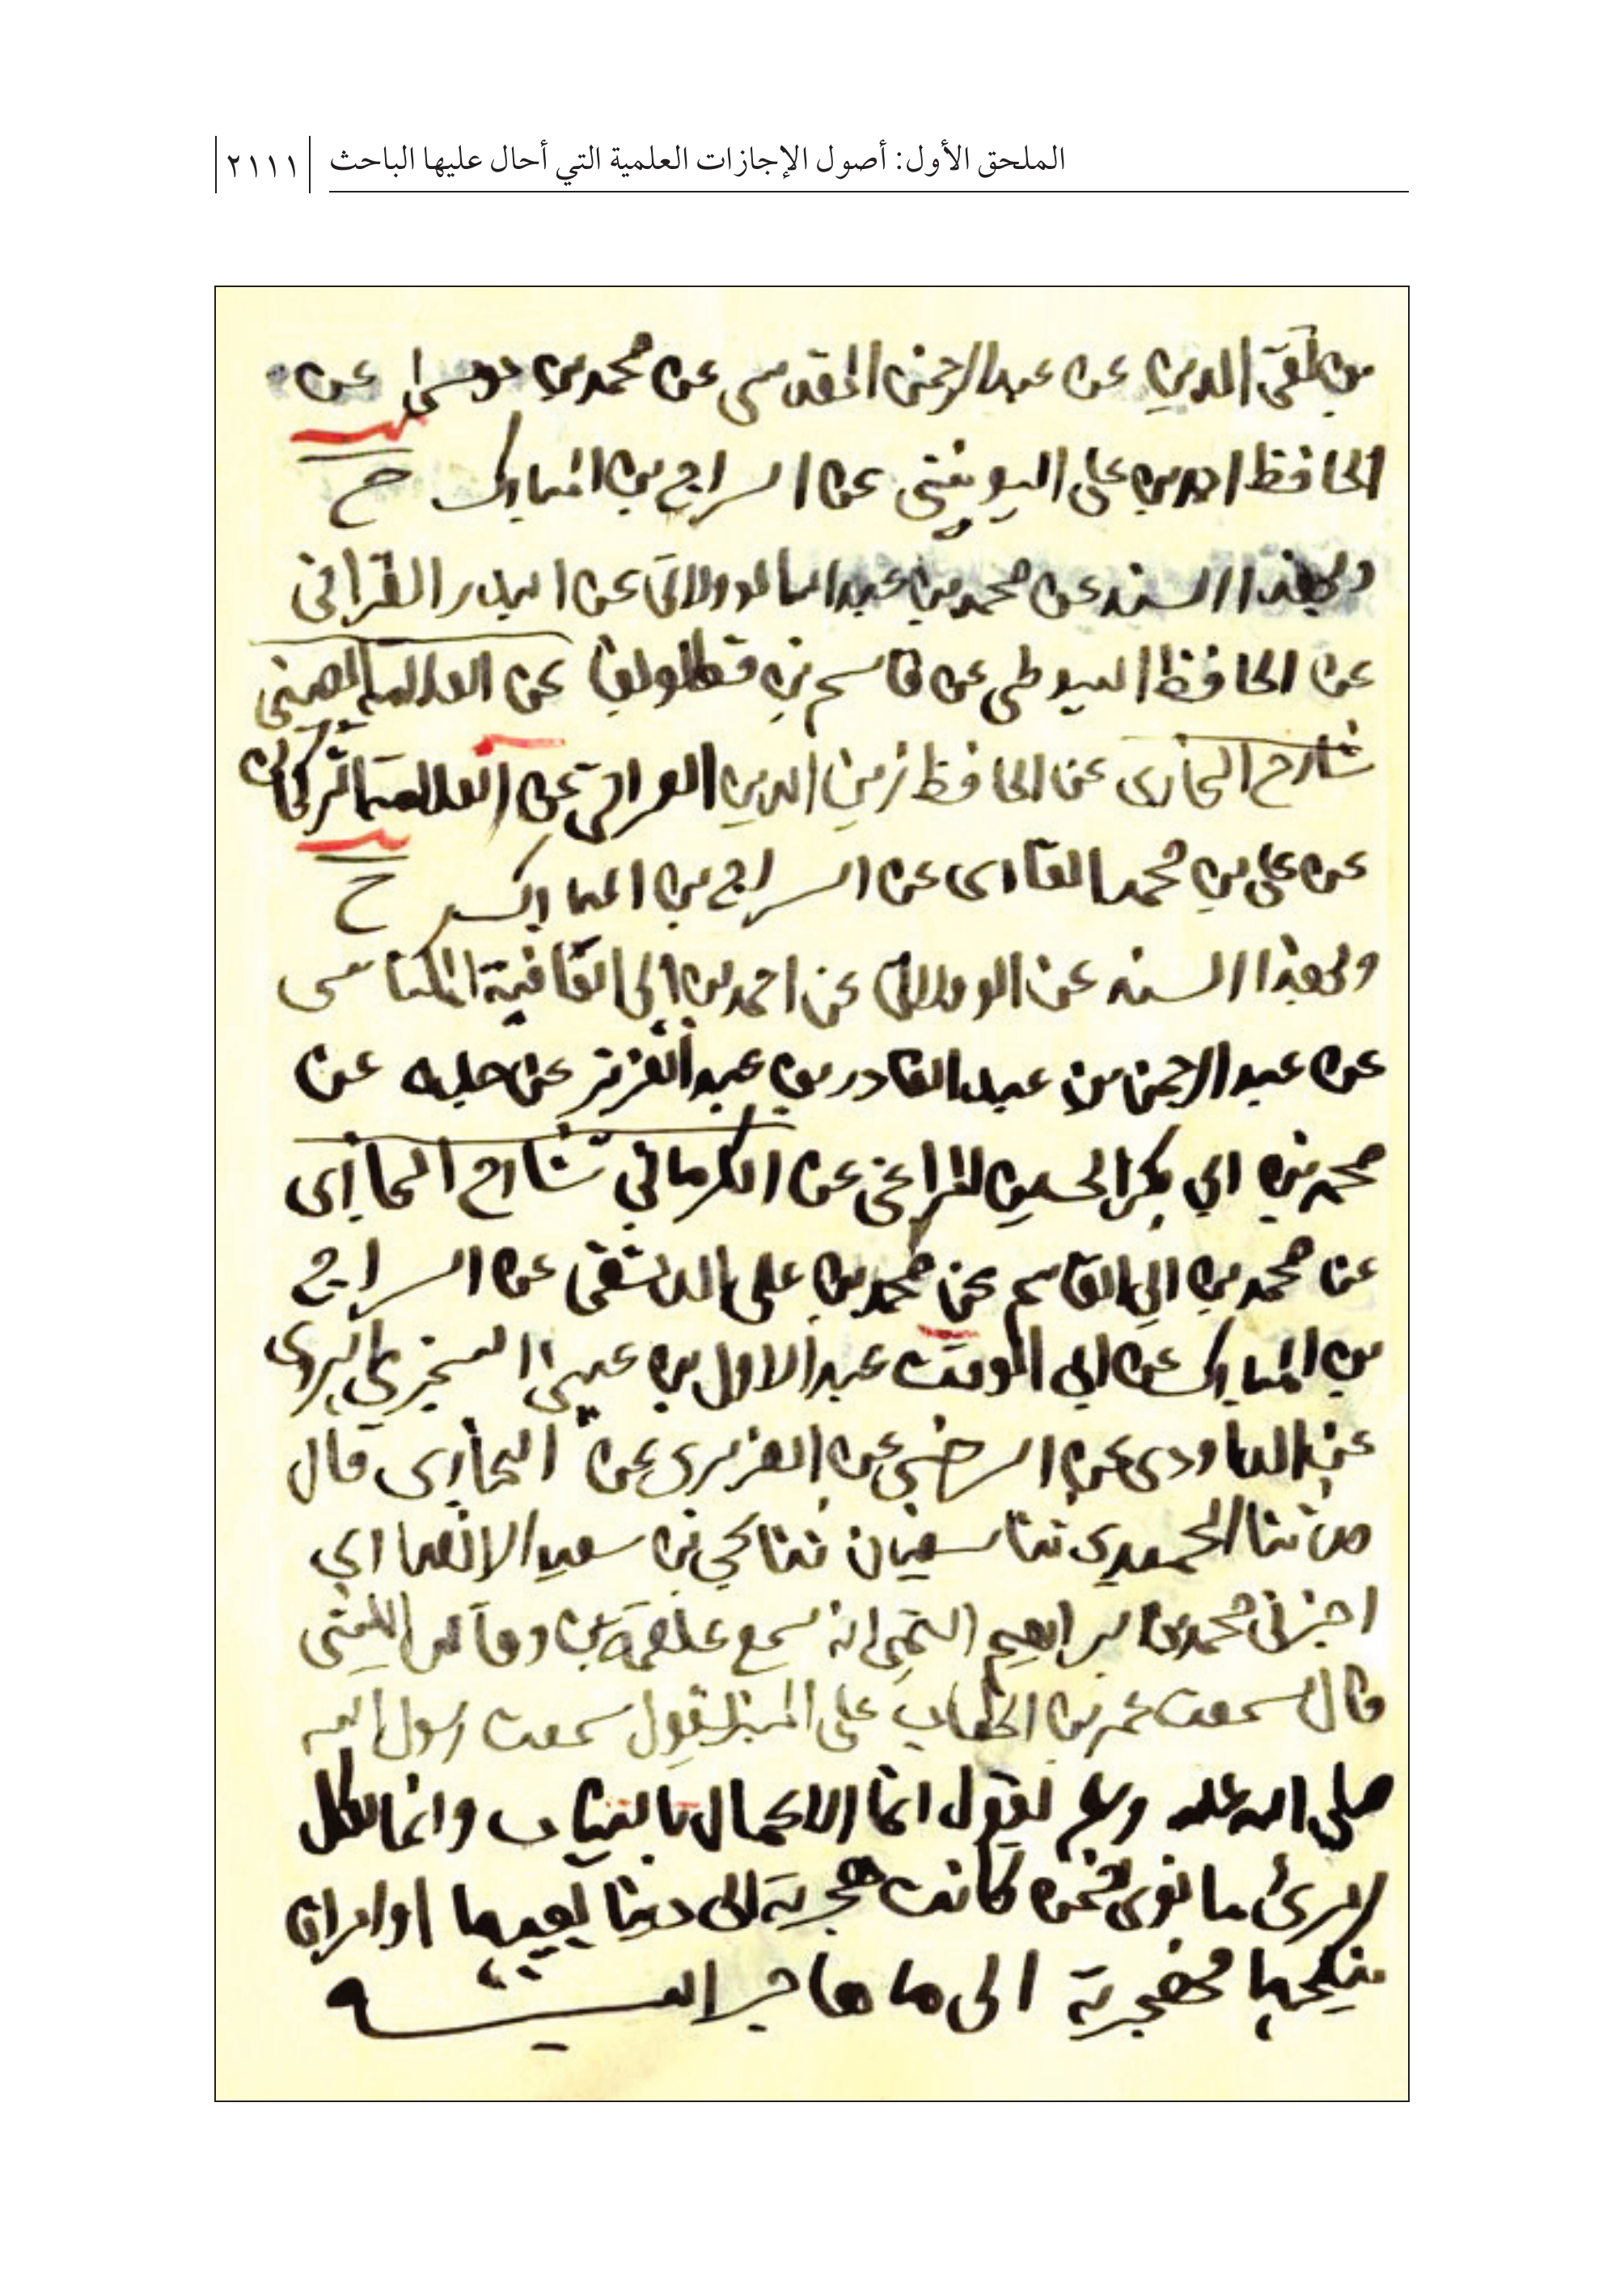 الملحق الأول: أصول الإجازات العلمية التي أحال عليها الباحث
٢١١١
بن تقي الدين عن عبد الرحمن المقدسي عن محمد بن موسى عن
الحافظ احمد بن علي اليونيني عن السراج بن المبارك ح
وبهذا السند عن محمد بن عبد الولاتي عن البدر القرافي
عن الحافظ السيوطي عن قاسم بن قطلوبغا عن العلامة العيني
شارح البخاري عن الحافظ زين الدين العراقي عن العلامة التركماني
عن علي بن محمد القاري عن السراج بن المبارك ح
وبهذا السند عن الولالي عن احمد بن ابي القافية المكناسي
عن عبد الرحمن بن عبد القادر بن عبد العزيز عن جده عن
محمد بن ابي بكر الحسين المراغي عن الكرماني شارح البخاري
عن محمد بن ابي القاسم عن محمد بن علي الدمشقي عن السراج
بن المبارك عن ابي الوقت عبد الاول بن عيسى السجزي الهروي
عن الداودي عن السرخسي عن الفربري عن البخاري قال
حدثنا الحميدي ثنا سفيان ثنا يحيى بن سعيد الانصاري
اخبرني محمد بن ابراهيم التيمي انه سمع علقمة بن وقاص الليثي
قال سمعت عمر بن الخطاب على المنبر يقول سمعت رسول الله
صلى الله عليه وسلم يقول انما الاعمال بالنيات وانما لكل
امرئ ما نوى فمن كانت هجرته الى دنيا يصيبها او امراة
ينكحها فهجرته الى ما هاجر اليه